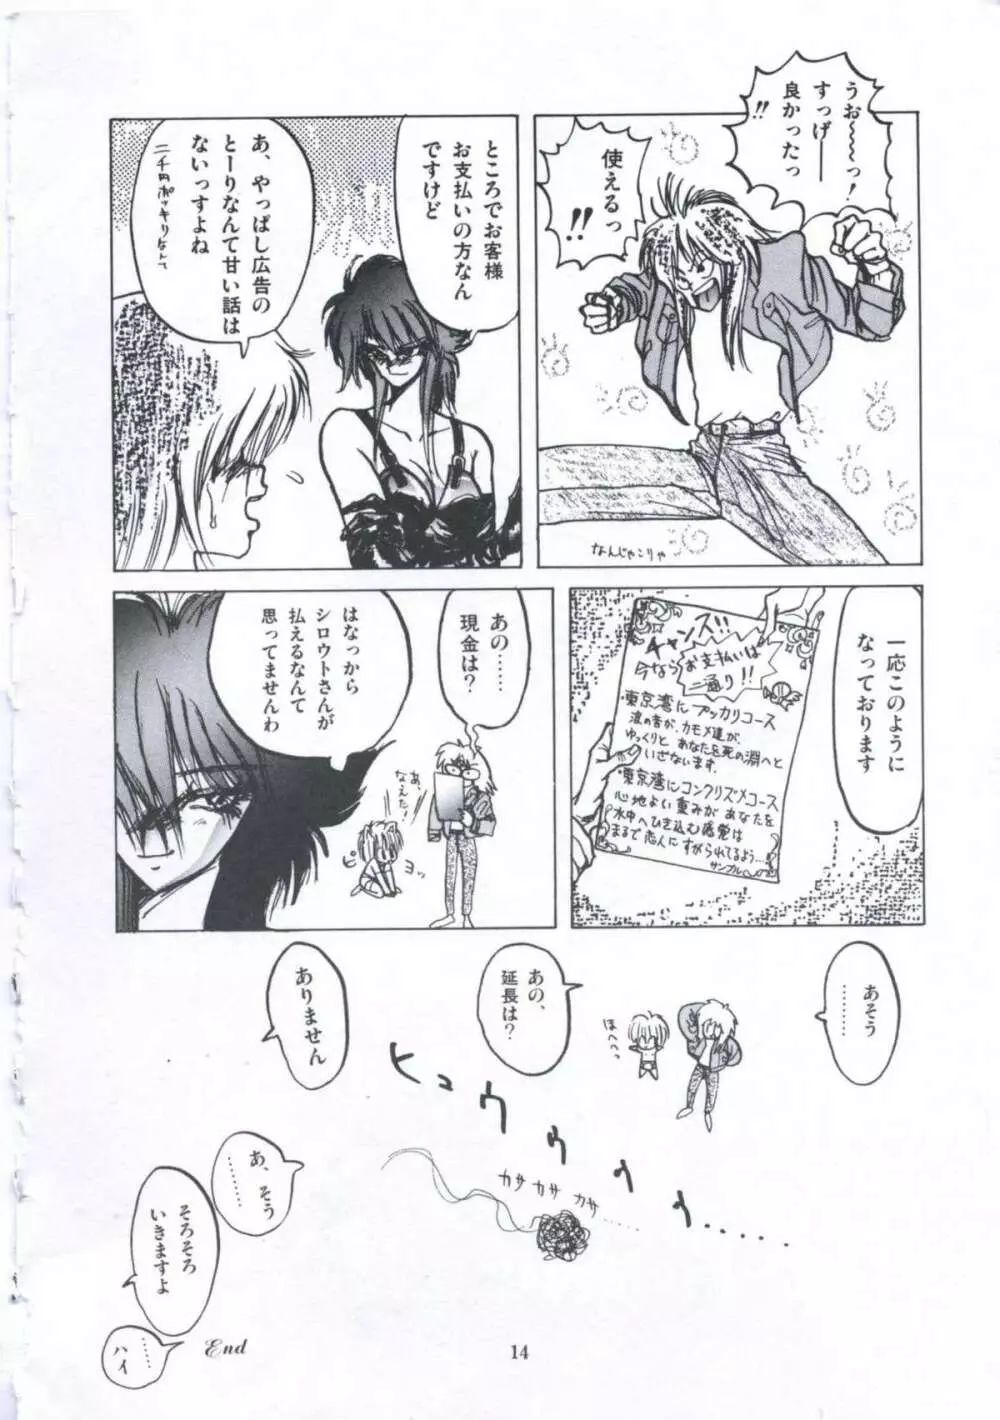 うお〜〜〜っ!
すっげ――
良かったっ
!!
使えるっ
!!
なんじゃこりゃ
ところでお客様
お支払いの方なん
ですけど
あ、やっぱし広告の
とーりなんて甘い話は
ないっすよね
二千円ポッキリなんて
一応このように
なっております
チャンス!!
今なら
お支払いは
二通り!!
・東京湾にプッカリコース
波の音が、カモメ達が、
ゆっくりと あなたを死の淵へと
いざないます。
・東京湾にコンクリヅメコース
心地よい重みが あなたを
水中へひき込む感覚は
まるで恋人に すがられてるよう…
サンプル
あの……
現金は?
あ、
なえた!
ピ
ョッ
はなっから
シロウトさんが
払えるなんて
思ってませんわ
あそう
………
ほへへっ
あの、
延長は?
ありません
ヒュウウ
カサ カサ カサ……
あ、そう
………
そろそろ
いきますよ
……
ハイ
End
14